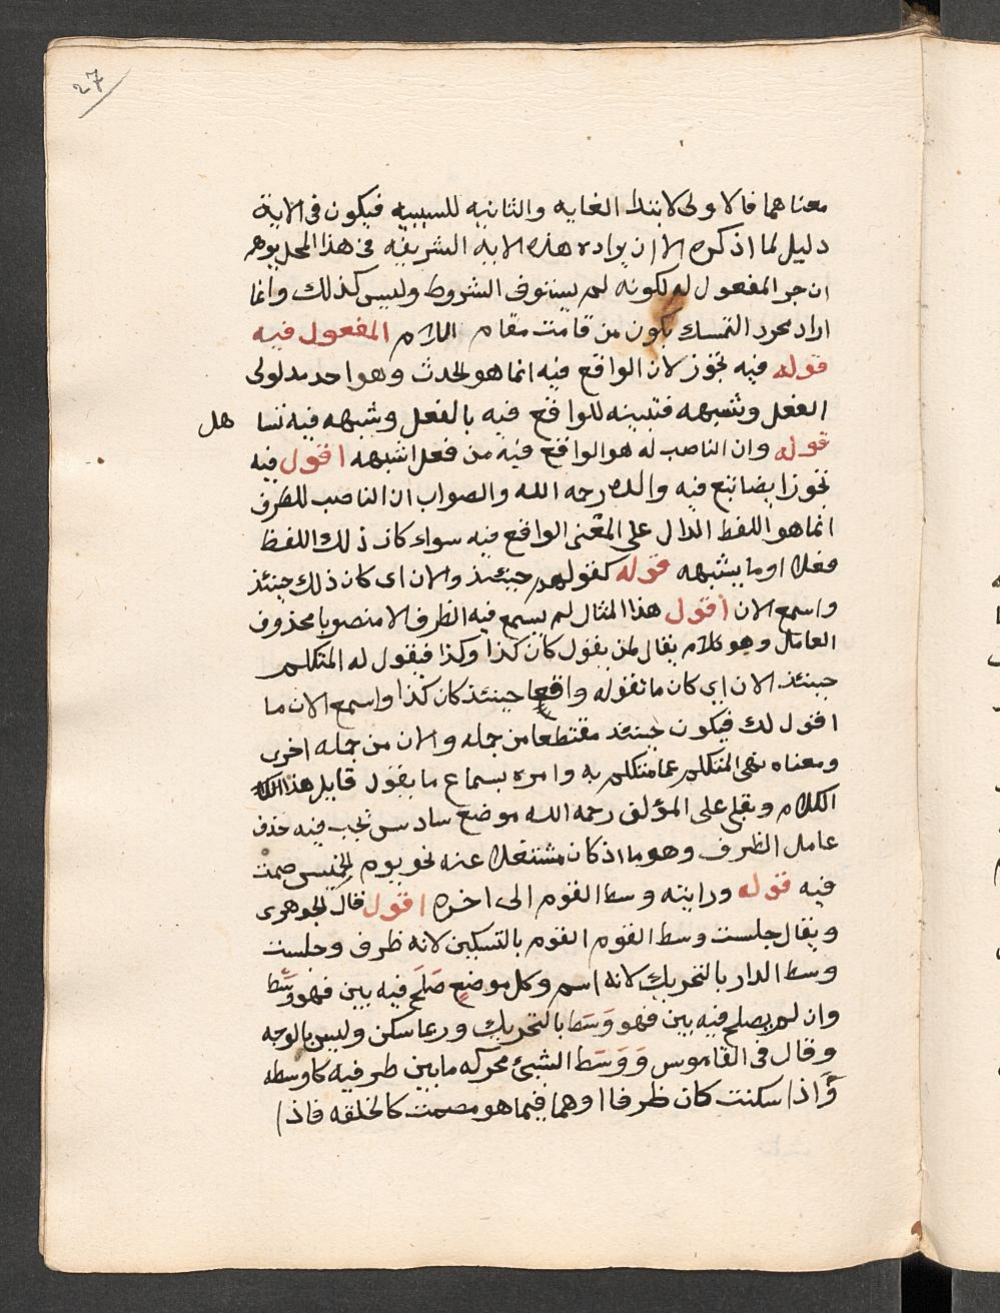 27
معناهما فالاولى لابتدا الغايه والثانيه للسببيه فيكون فى الاية
دليل لما ذكره الا ان يراده هذه الايه الشريفه فى هذا المحل يوهم
ان جر المفعول له لكونه لم يستوف الشروط وليس كذلك وانما
اراد مجرد التمسك بكون من قامت مقام اللام المفعول فيه
قوله فيه تجوز لان الواقع فيه انما هو الحدث وهو احد مدلولى
الفعل وشبهه فتبينه للواقع فيه بالفعل وشبهه فيه تسا هل
قوله وان الناصب له هو الواقع فيه من فعل اشبهه اقول فيه
تجوز ايضا تبع فيه والده رحمه الله والصواب ان الناصب للظرف
انما هو اللفظ الدال على المعنى الواقع فيه سواء كان ذلك اللفظ
فعلا او ما يشبهه قوله كقولهم حينئذ والان اى كان ذلك حينئذ
واسمع الان اقول هذا المثال لم يسمع فيه الظرف الا منصوبا محذوف
العامل وهو كلام يقال لمن يقول كان كذا وكذا فيقول له المتكلم
حينئذ الان اي كان ما تقوله واقعا حينئذ كان كذا واسمع الان ما
اقول لك فيكون حينئذ مقتطعا من جمله والان من جمله اخرى
ومعناه نهى المتكلم عما متكلم به وامره بسماع ما يقول قايل هذا
الكلام وبقى على المؤلف رحمه الله موضع سادس تجب فيه حذف
عامل الظرف وهو ما اذ كان مشتغلا عنه نحو يوم الخميس صمت
فيه قوله ورايته وسط القوم الى اخره اقول قال الجوهرى
ويقال جلست وسط القوم القوم بالتسكين لانه ظرف وجلست
وسط الدار بالتحريك لانه اسم وكل موضع صَلَحَ فيه بين فهو وَسْط
وان لم يصلح فيه بين فهو وَسَط بالتحريك وربما سكن وليس بالوجه
وقال فى القاموس وَوَسَط الشيئ محركه ما بين طرفيه كاوسطه
وَاذا سكنت كان ظرفا او هما فيما هو مصمت كالحلقه فاذا